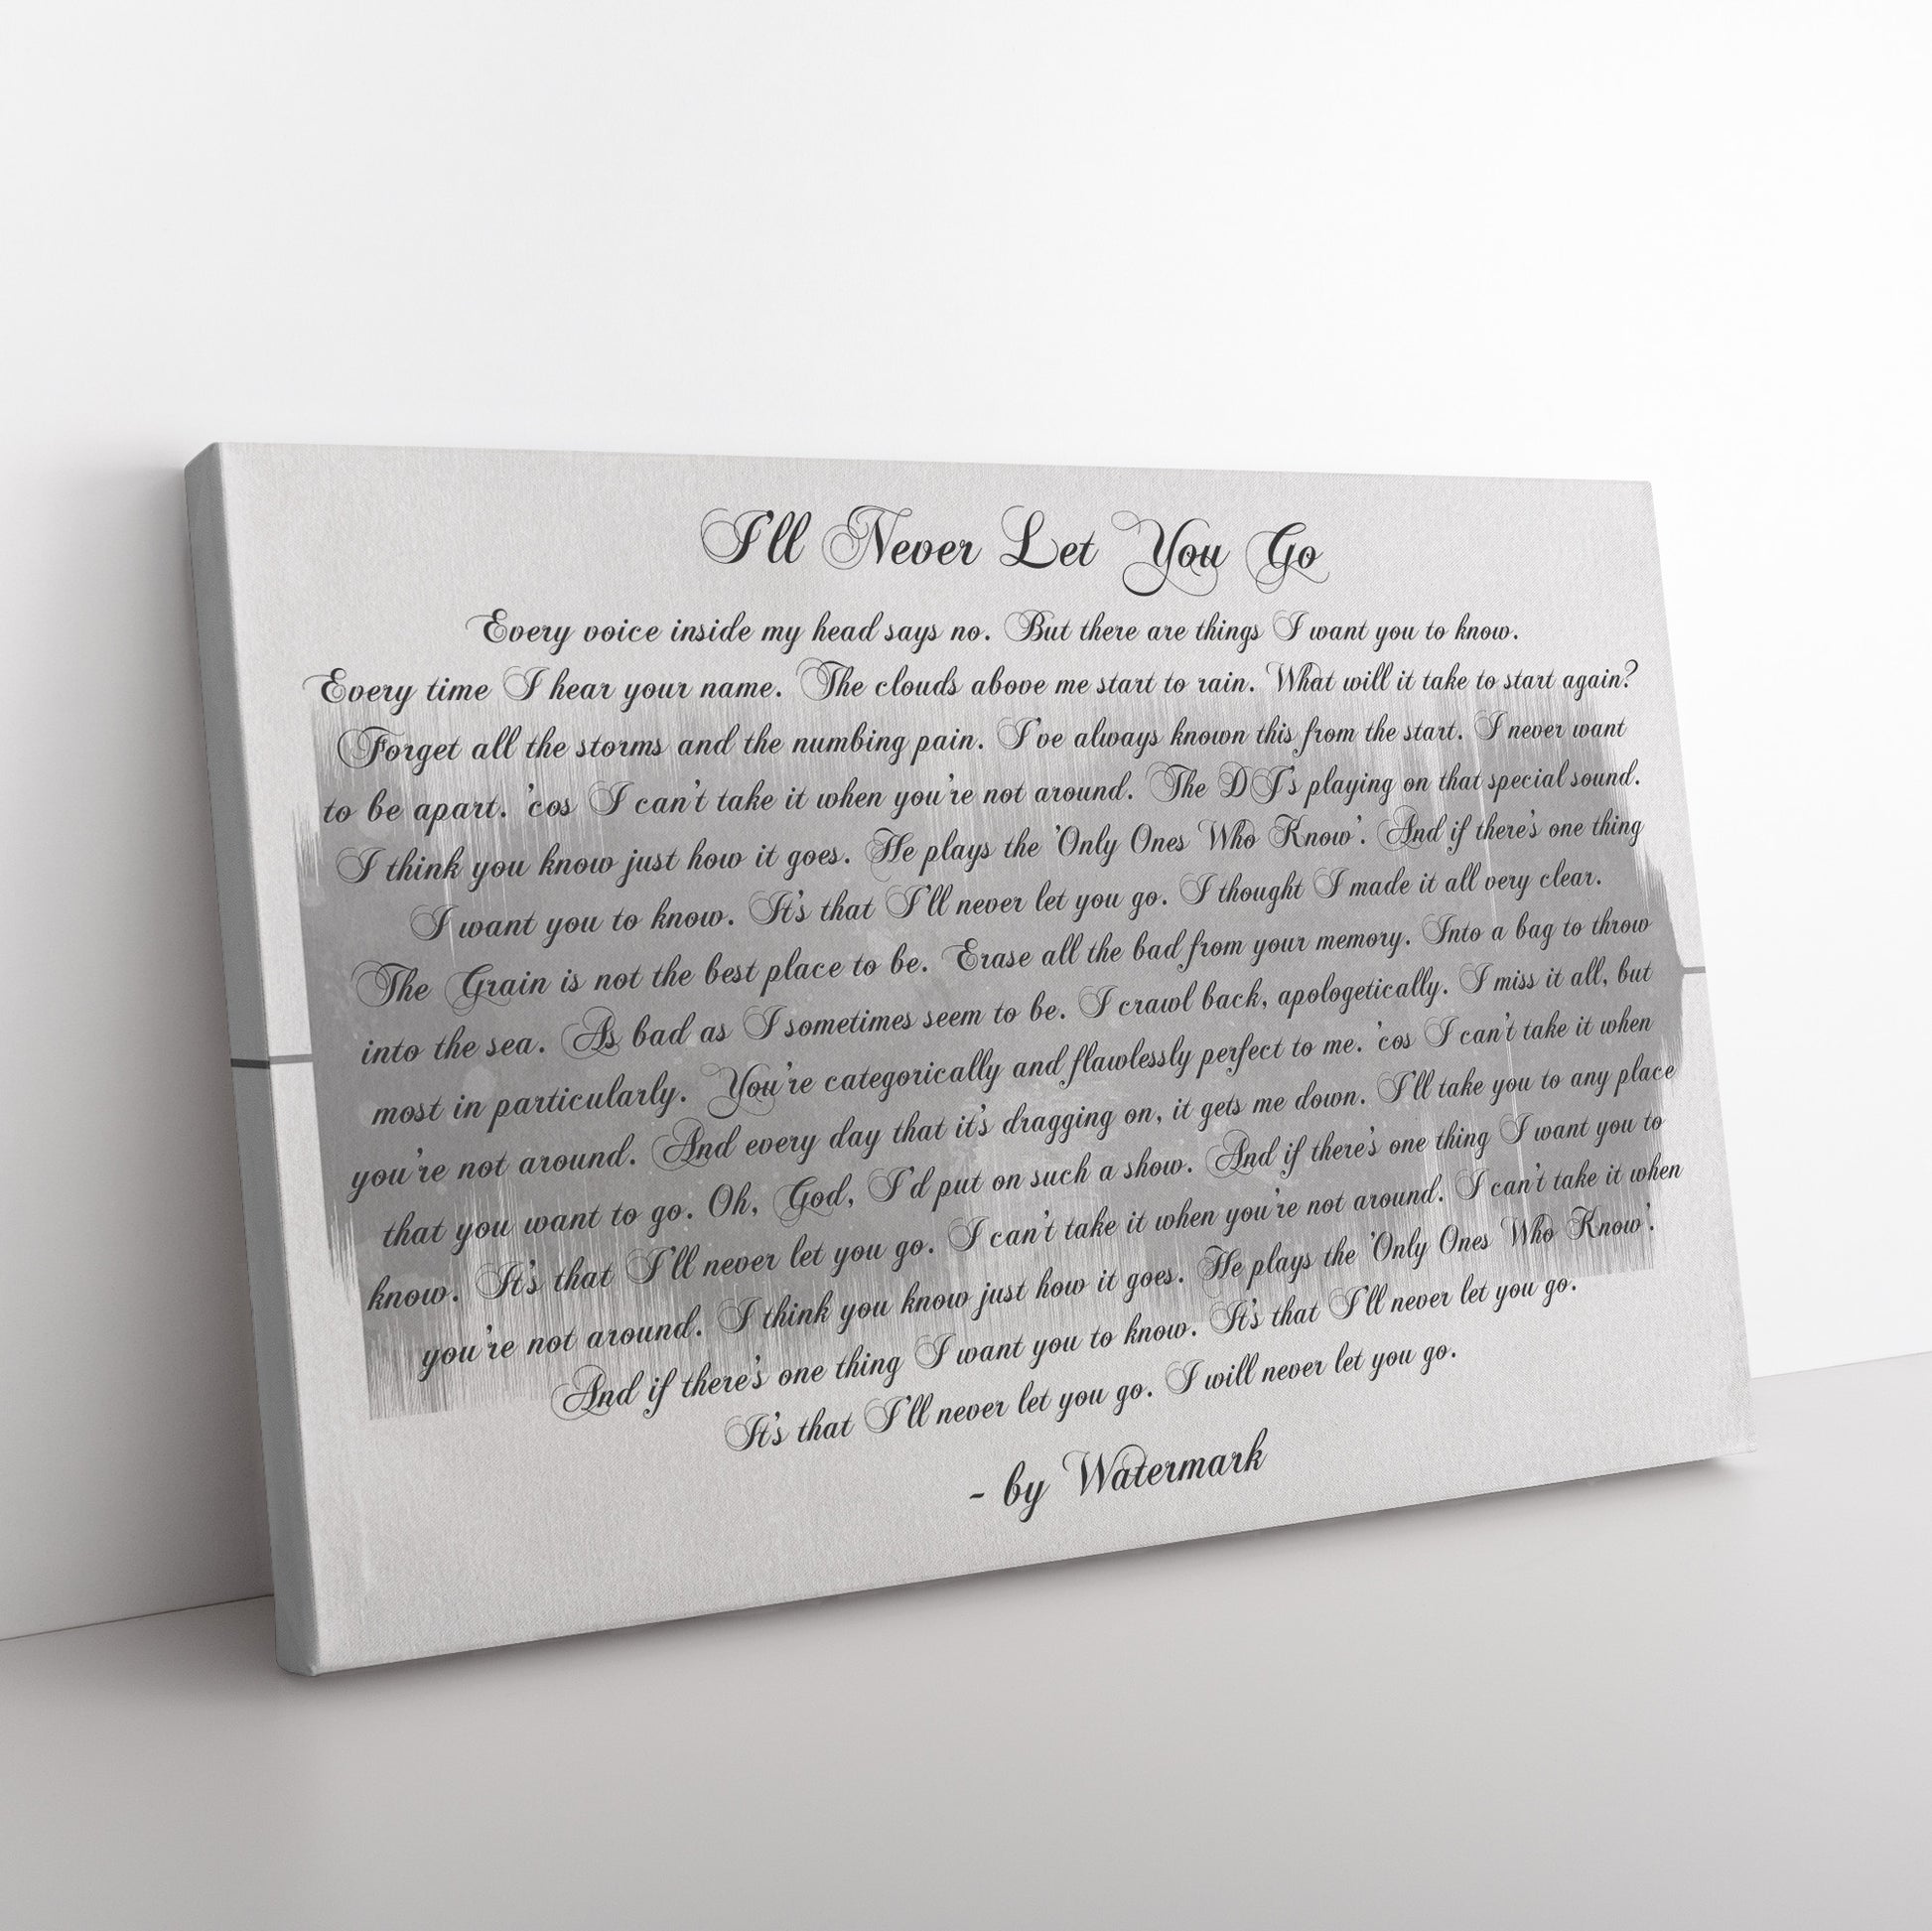 I'll Never Let You Go
Every voice inside my head says no. But there are things I want you to know.
Every time I hear your name. The clouds above me start to rain. What will it take to start again?
Forget all the storms and the numbing pain. I've always known this from the start. I never want
to be apart. 'cos I can't take it when you're not around. The DJ's playing on that special sound.
I think you know just how it goes. He plays the 'Only Ones Who Know'. And if there's one thing
I want you to know. It's that I'll never let you go. I thought I made it all very clear.
The Grain is not the best place to be. Erase all the bad from your memory. Into a bag to throw
into the sea. As bad as I sometimes seem to be. I crawl back, apologetically. I miss it all, but
most in particularly. You're categorically and flawlessly perfect to me. 'cos I can't take it when
you're not around. And every day that it's dragging on, it gets me down. I'll take you to any place
that you want to go. Oh, God, I'd put on such a show. And if there's one thing I want you to
know. It's that I'll never let you go. I can't take it when you're not around. I can't take it when
you're not around. I think you know just how it goes. He plays the 'Only Ones Who Know'.
And if there's one thing I want you to know. It's that I'll never let you go.
It's that I'll never let you go. I will never let you go.
- by Watermark